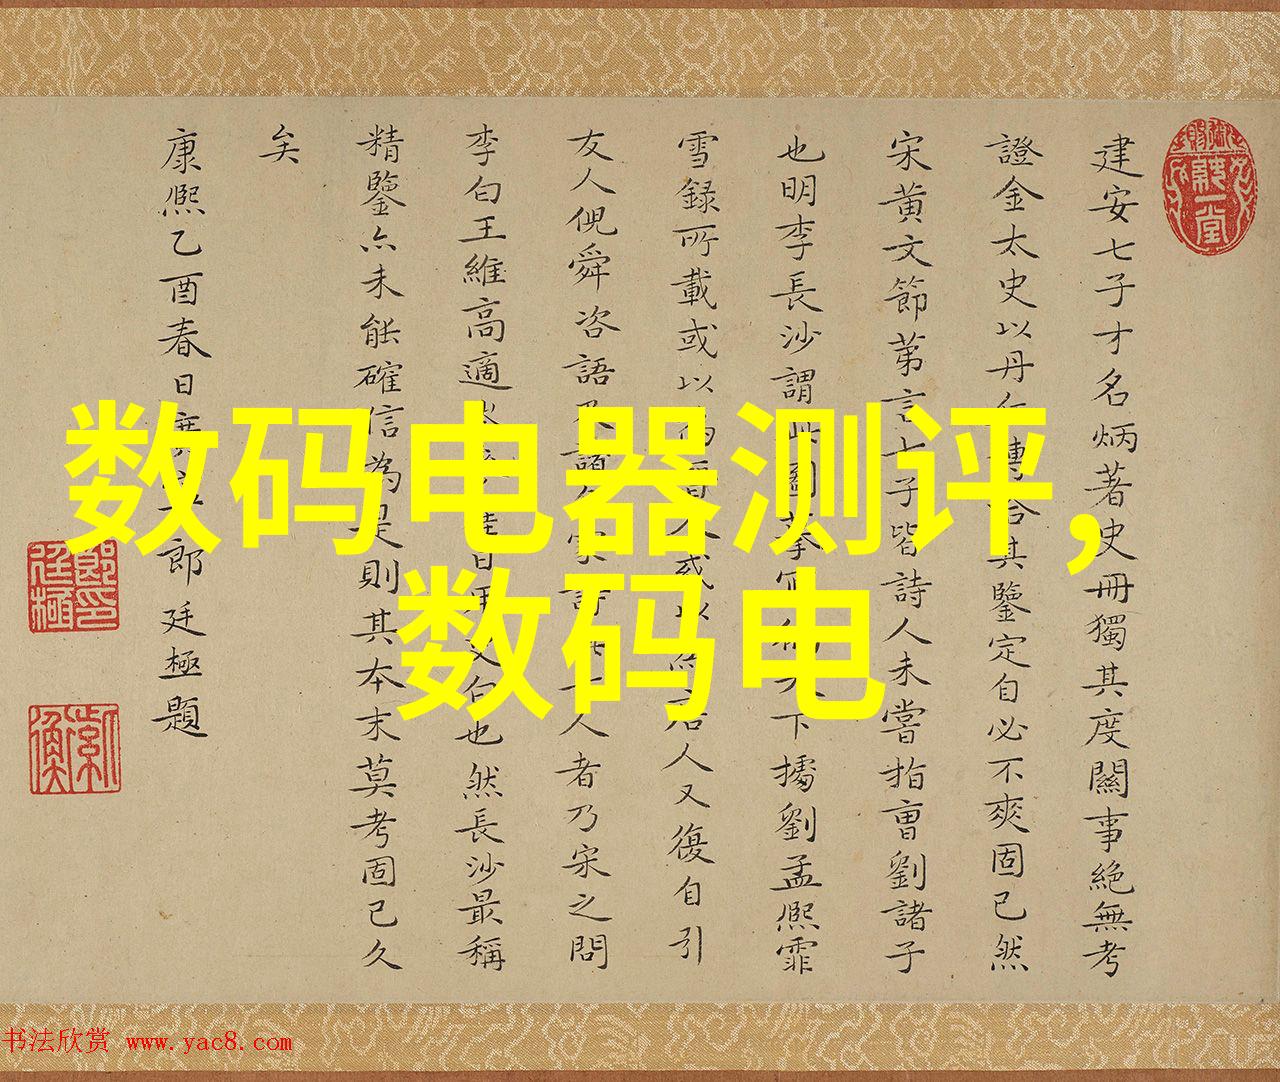 建安七子才名炳著史冊獨其度關事絕無考
證金太史以丹其鑒定自必不爽固已然
宋黃文節第言七子皆詩人未嘗指曹劉諸子
也明李長沙謂此圖下據劉孟熙霏
雪録所載或以人又復自引
友人倪舜咨語人者乃宋之問
李白王維高適白也然長沙最稱
精鑒亦未能確信為是則其本末莫考固已久
矣
康熙乙酉春日郎廷極題
数码电器测评，
数码电
书法欣赏 www.yac8.com